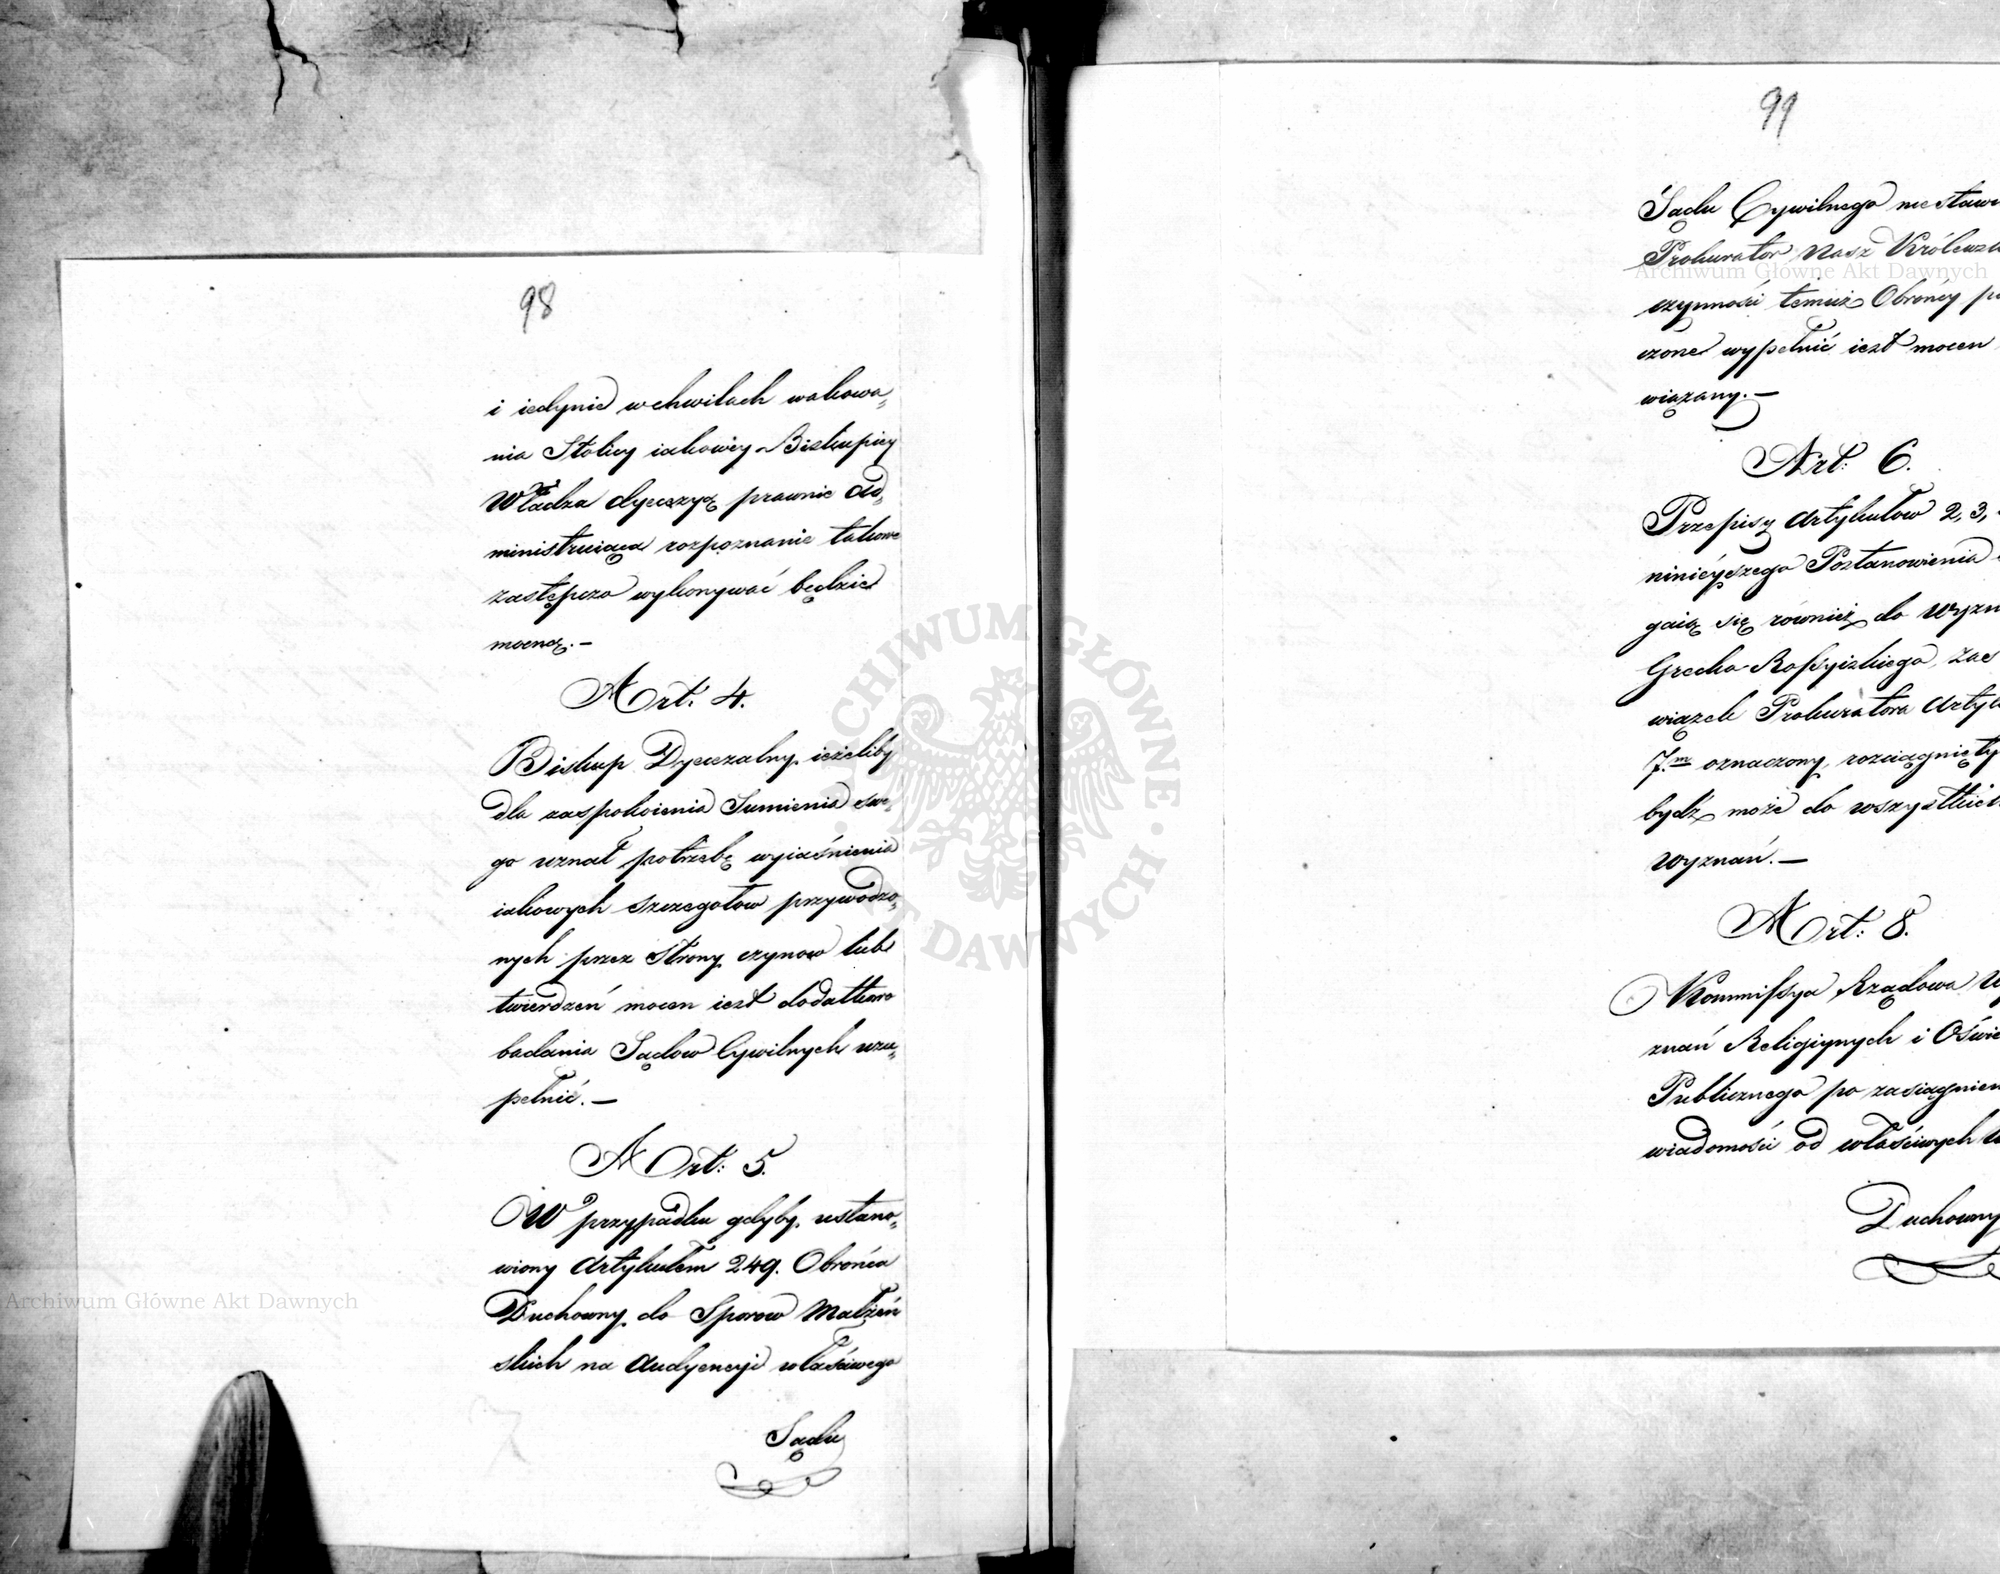 98
i iedynie w chwilach wakowa=
nia Stolicy iakowéy Biskupiey
Władza dyecezyą prawnie ad=
ministruiąca rozpoznanie takowe
zastępczo wykonywać będzie
mocną.—
Art: 4.
Biskup Dyecezalny ieżeliby
dla zaspokoienia Sumienia swe=
go uznał potrzebę wyiaśnienia
iakowych szczegołow przywodzo=
nych przez Strony czynow lub
twierdzeń mocen iest dodatkowo
badania Sądow Cywilnych uzu=
pełnić.—
Art: 5.
W przypadku gdyby ustano=
wiony Artykułem 249. Obrońca
Duchowny do Sporow Małżeń
skich na Audyencyi właściwego
Sądu
99
Sądu Cywilnego nie stawi
Prokurator Nasz Królewsk
czynności temuż Obrońcy po
czone wypełnić iest mocen
wiązany.—
Art: 6.
Przepisy Artykułow 2, 3,
ninieyszego Postanowienia
gaią się również do Wyzn
Grecko-Rossyiskiego, zaś
wiązek Prokuratora Artyk
7.m oznaczony, rozciągnięty
bydź może do wszystkich
Wyznań.—
Art: 8.
Kommissya Rządowa Wy
znań Religiynych i Oświe
Publicznego po zasiągnien
wiadomości od właściwych W
Duchowny
Archiwum Główne Akt Dawnych
Archiwum Główne Akt Dawnych
ARCHIWUM GŁÓWNE AKT DAWNYCH